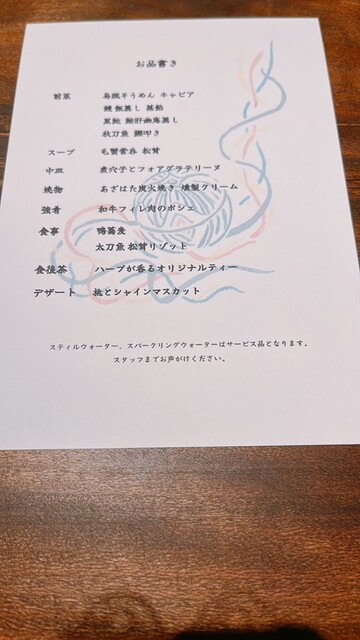 お品書き
前菜 烏賊そうめん キャビア
鰻 飯蒸し 蒸鮑
秋刀魚 鰹叩き
スープ 毛蟹 松茸
中皿 煮穴子とフォアグラテリーヌ
焼物 あざはた炭火焼き 燻製クリーム
強肴 和牛フィレ肉のポシェ
食事 鴨蕎麦
太刀魚 松茸リゾット
食後茶 ハーブが香るオリジナルティー
デザート 桃とシャインマスカット
スティルウォーター、スパークリングウォーターはサービス品となります。
スタッフまでお声がけください。